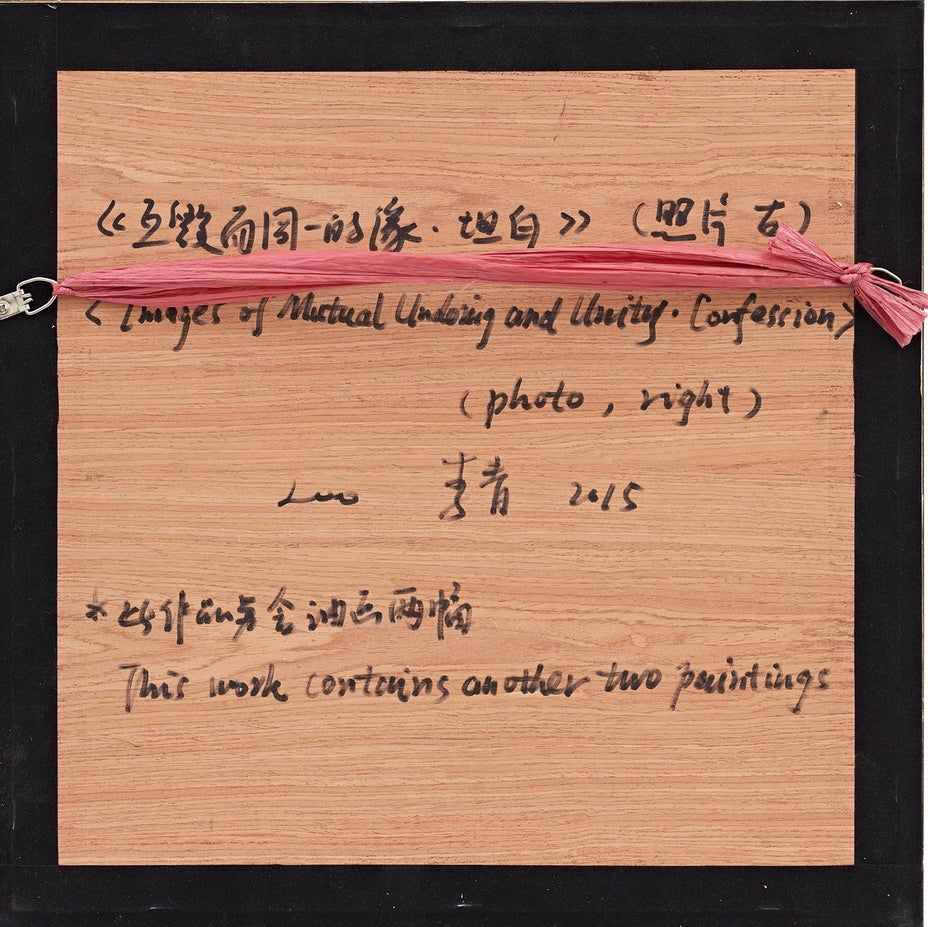 《互毁而同一的像·坦白》（照片 右）
< Images of Mutual Undoing and Unity · Confession>
(photo , right)
李青 2015
*此作品另含油画两幅
This work contains another two paintings